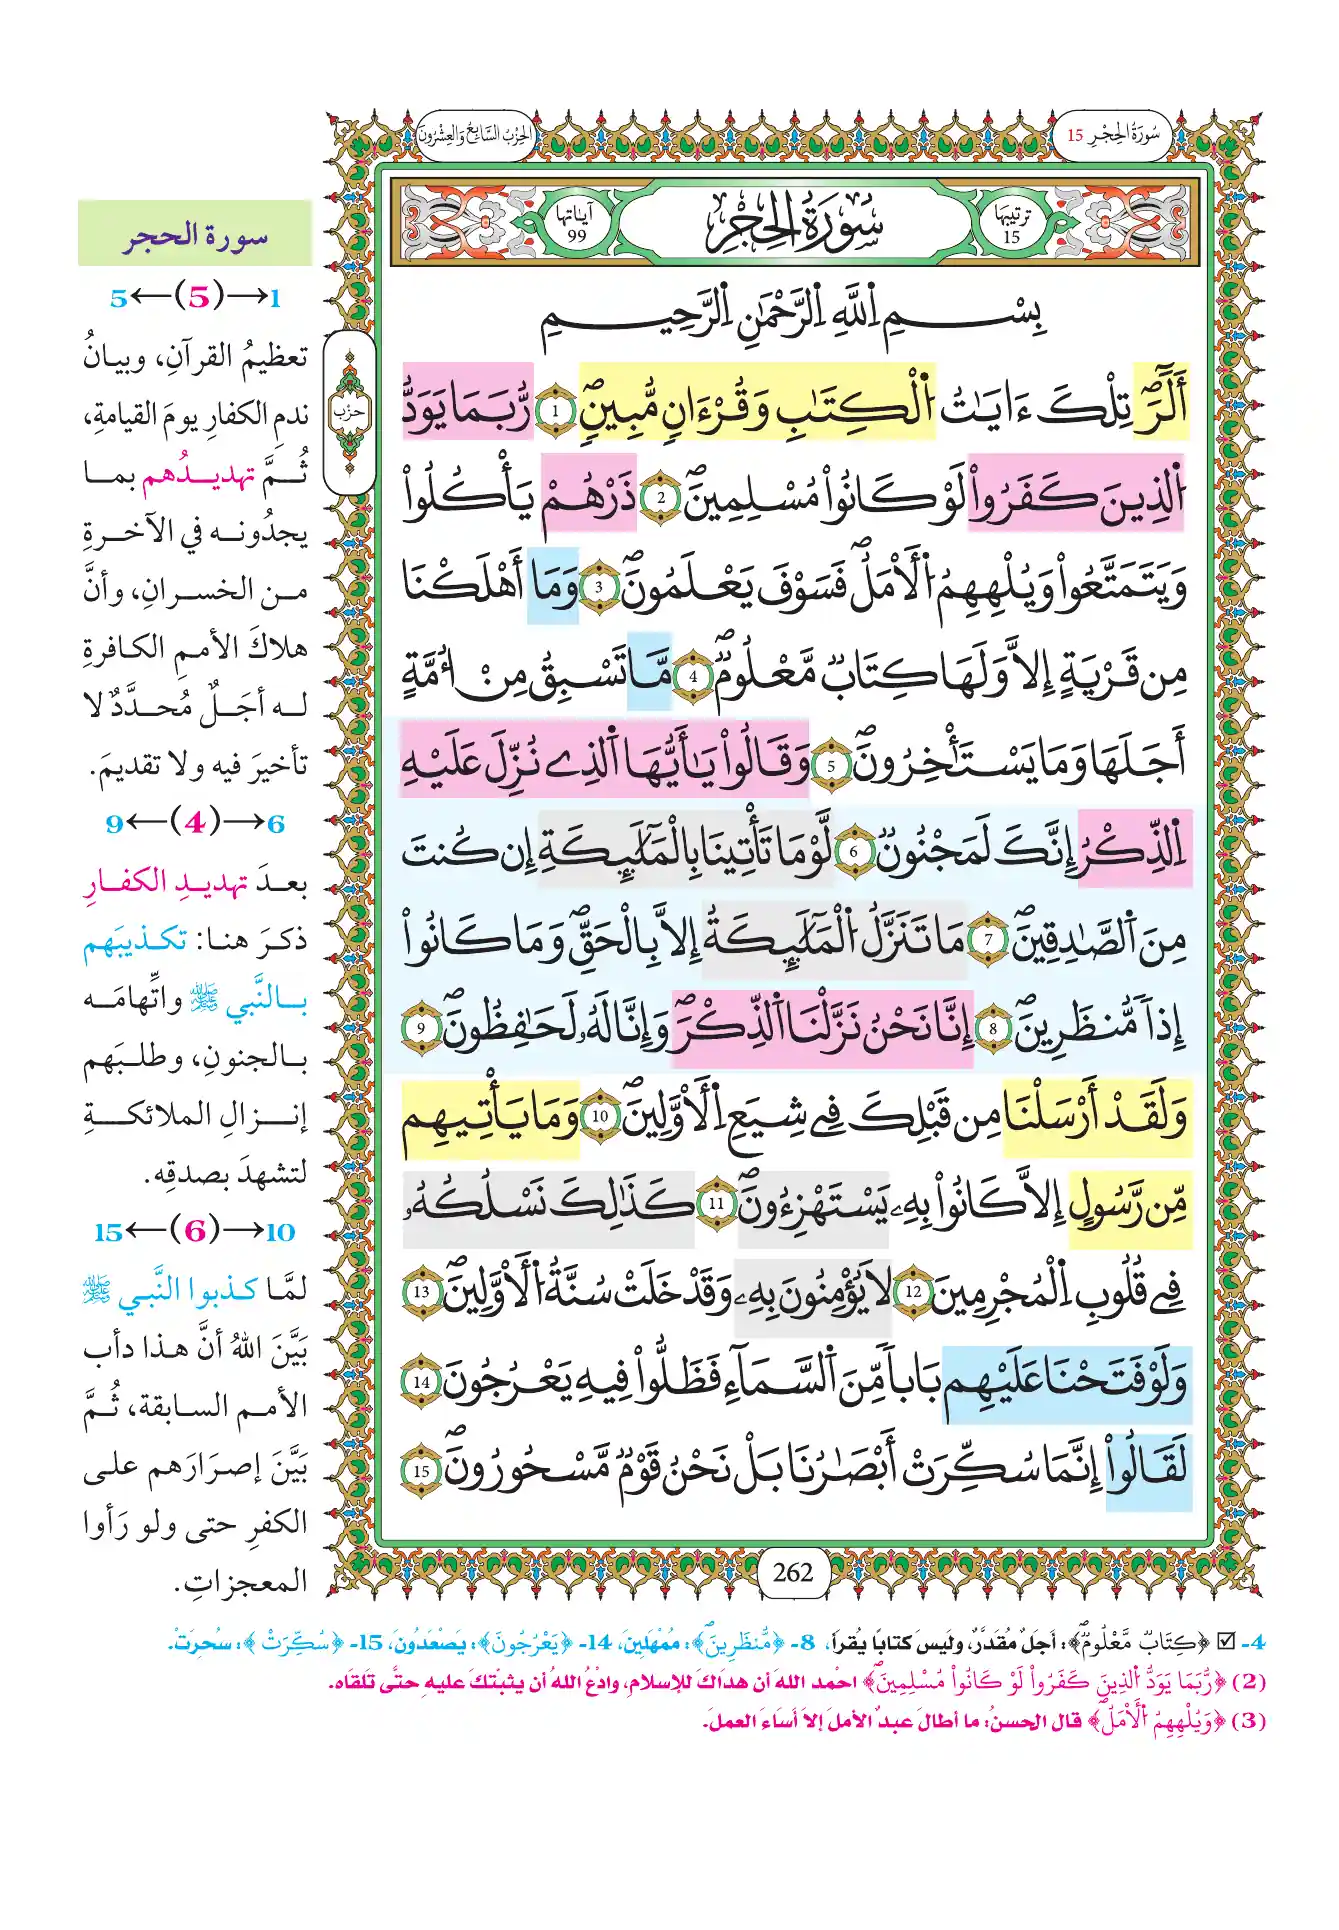 سُورَةُ الحِجْرِ 15
الحِزْبُ السَّابِعُ وَالعِشْرُونَ
ترتيبها 15
سُورَةُ الحِجْرِ
آياتها 99
بِسْمِ اِللَّهِ اِلرَّحْمَٰنِ اِلرَّحِيمِ
أَلَٓرَۖ تِلْكَ ءَايَٰتُ اُلْكِتَٰبِ وَقُرْءَانٖ مُّبِينٖۖ 1 رُّبَمَا يَوَدُّ
اُلذِينَ كَفَرُواْ لَوْ كَانُواْ مُسْلِمِينَۖ 2 ذَرْهُمْ يَأْكُلُواْ
وَيَتَمَتَّعُواْ وَيُلْهِهِمُ اُلْأَمَلُۖ فَسَوْفَ يَعْلَمُونَۖ 3 وَمَا أَهْلَكْنَا
مِن قَرْيَةٍ إِلَّا وَلَهَا كِتَابٞ مَّعْلُومٞۖ 4 مَّا تَسْبِقُ مِنْ أُمَّةٍ
أَجَلَهَا وَمَا يَسْتَٰٔخِرُونَۖ 5 وَقَالُواْ يَٰأَيُّهَا اَلذِے نُزِّلَ عَلَيْهِ
اِلذِّكْرُ إِنَّكَ لَمَجْنُونٞۖ 6 لَّوْمَا تَأْتِينَا بِالْمَلَٰٓئِكَةِ إِن كُنتَ
مِنَ اَلصَّٰدِقِينَۖ 7 مَا تَنَزَّلُ اُلْمَلَٰٓئِكَةُ إِلَّا بِالْحَقِّۖ وَمَا كَانُواْ
إِذاٗ مُّنظَرِينَۖ 8 إِنَّا نَحْنُ نَزَّلْنَا اَلذِّكْرَۖ وَإِنَّا لَهُۥ لَحَٰفِظُونَۖ 9
وَلَقَدْ أَرْسَلْنَا مِن قَبْلِكَ فِے شِيَعِ اِلْأَوَّلِينَۖ 10 وَمَا يَأْتِيهِم
مِّن رَّسُولٍ إِلَّا كَانُواْ بِهِۦ يَسْتَهْزِءُونَۖ 11 كَذَٰلِكَ نَسْلُكُهُۥ
فِے قُلُوبِ اِلْمُجْرِمِينَ 12 لَا يُؤْمِنُونَ بِهِۦ وَقَدْ خَلَتْ سُنَّةُ اُلْأَوَّلِينَۖ 13
وَلَوْ فَتَحْنَا عَلَيْهِم بَاباٗ مِّنَ اَلسَّمَآءِ فَظَلُّواْ فِيهِ يَعْرُجُونَ 14
لَقَالُواْ إِنَّمَا سُكِّرَتْ أَبْصَٰرُنَا بَلْ نَحْنُ قَوْمٞ مَّسْحُورُونَۖ 15
حزب
262
سورة الحجر
1→(5)←5
تعظيمُ القرآنِ، وبيانُ
ندمِ الكفارِ يومَ القيامةِ،
ثُمَّ تهديدُهم بما
يجدُونه في الآخرةِ
من الخسرانِ، وأنَّ
هلاكَ الأممِ الكافرةِ
له أجَلٌ مُحدَّدٌ لا
تأخيرَ فيه ولا تقديمَ.
6→(4)←9
بعدَ تهديدِ الكفارِ
ذكرَ هنا: تكذيبَهم
بالنَّبي ﷺ واتِّهامَه
بالجنونِ، وطلبَهم
إنزالِ الملائكةِ
لتشهدَ بصدقِه.
10→(6)←15
لمَّا كذبوا النَّبي ﷺ
بَيَّنَ اللهُ أنَّ هذا دأب
الأمم السابقة، ثُمَّ
بَيَّنَ إصرَارَهم على
الكفرِ حتى ولو رَأوا
المعجزاتِ.
4- ☑ ﴿كِتَابٞ مَّعْلُومٞۖ﴾: أجَلٌ مُقدَّرٌ، وليسَ كتابًا يُقرأ، 8- ﴿مُّنظَرِينَۖ﴾: مُمْهَلِينَ، 14- ﴿يَعْرُجُونَ﴾: يَصْعَدُونَ، 15- ﴿سُكِّرَتْ﴾: سُحِرَتْ.
(2) ﴿رُّبَمَا يَوَدُّ اُلذِينَ كَفَرُواْ لَوْ كَانُواْ مُسْلِمِينَۖ﴾ احْمد اللهَ أن هداكَ للإسلامِ، وادْعُ اللهُ أن يثبتكَ عليهِ حتَّى تلقَاه.
(3) ﴿وَيُلْهِهِمُ اُلْأَمَلُۖ﴾ قال الحسنُ: ما أطالَ عبدٌ الأملَ إلا أساءَ العملَ.